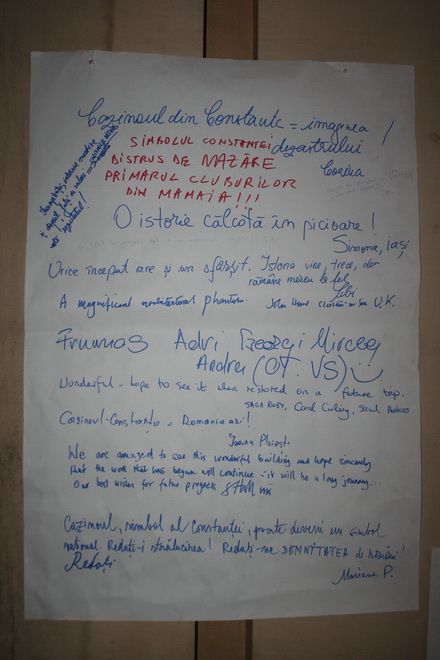 Cazinoul din Constanța = imaginea
dezastrului !
Corina
SIMBOLUL CONSTANTEI
DISTRUS DE MAZĂRE
PRIMARUL CLUBURILOR
DIN MAMAIA !!!
O istorie călcată în picioare !
Simona, Iași
Orice început are și un sfârșit. Istoria vine, trece, dar
rămâne mereu la fel
A magnificent architectural phantom. John U.K.
Frumos Adri Georgi Mircea
Andrei (OT. VS)
Wonderful - hope to see it when restored on a future trip.
Carol
Cazinoul-Constanța = Romania azi !
Ioana Ploiești
We are amazed to see this wonderful building and hope sincerely
that the work that has begun will continue - it will be a long journey...
Our best wishes for future progress
Cazinoul, simbol al Constanței, poate deveni un simbol
național. Redați-i strălucirea ! Redați-ne DEMNITATEA de ROMÂNI !
Redați
Mariana P.